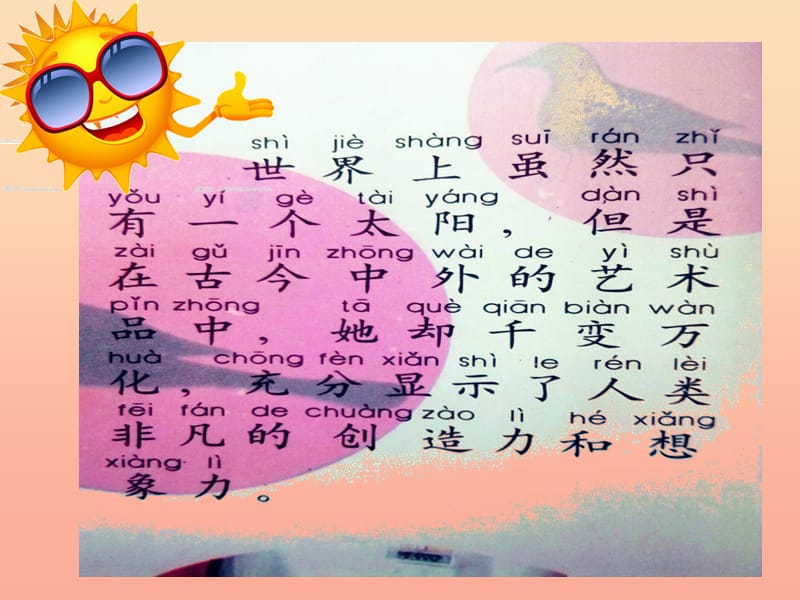 shì jiè shàng suī rán zhǐ
世界上虽然只
yǒu yí gè tài yáng dàn shì
有一个太阳，但是
zài gǔ jīn zhōng wài de yì shù
在古今中外的艺术
pǐn zhōng tā què qiān biàn wàn
品中，她却千变万
huà chōng fèn xiǎn shì le rén lèi
化，充分显示了人类
fēi fán de chuàng zào lì hé xiǎng
非凡的创造力和想
xiàng lì
象力。